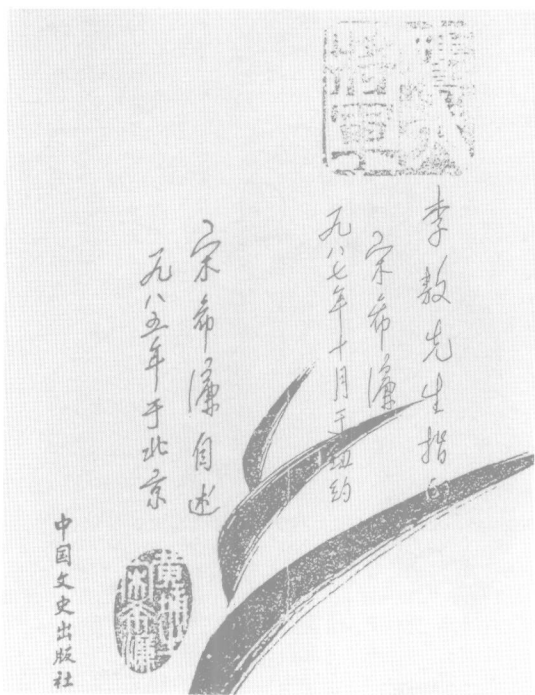 鹰犬将军
李敖先生指正
宋希濂
一九八七年十月于纽约
宋希濂自述
一九八五年于北京
中国文史出版社